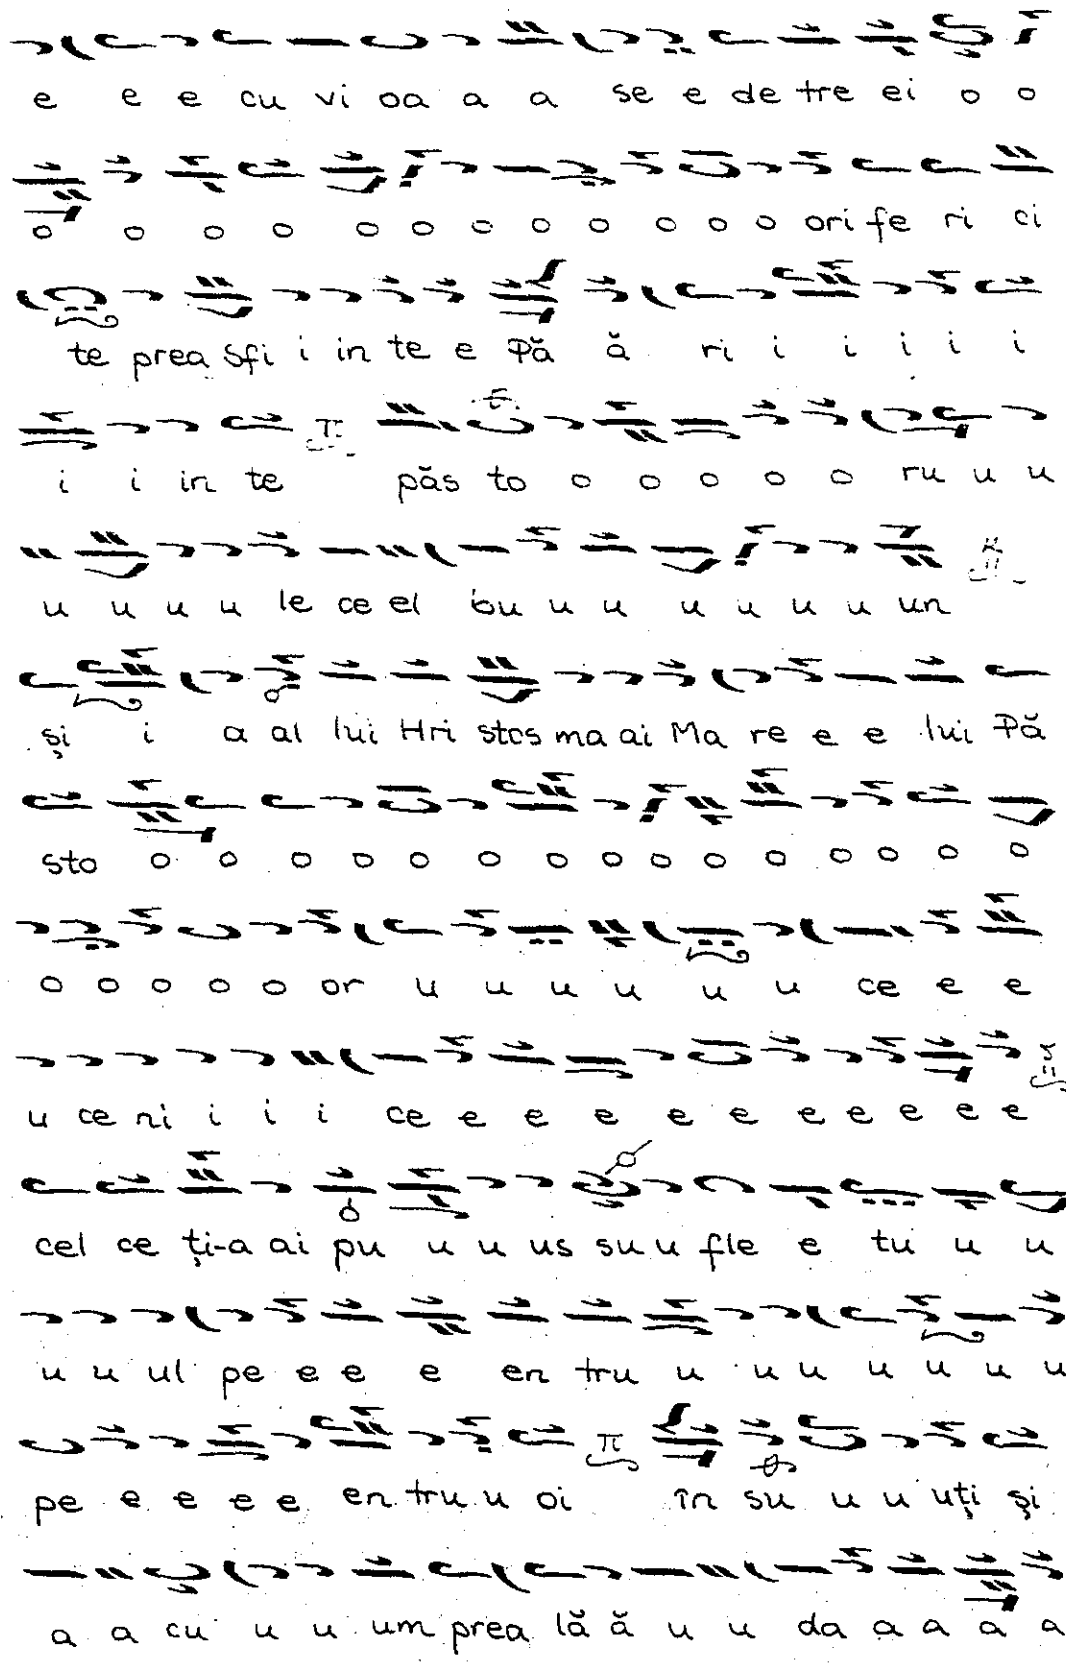 e e e cu vi oa a a se e de tre ei o o
o o o o o o o o o o o o ori fe ri ci
te prea Sfi i in te e Pă ă ri i i i i i
i i in te păs to o o o o o ru u u
u u u u le ce el bu u u u u u u un
și i a al lui Hri stos ma ai Ma re e e lui Pă
sto o o o o o o o o o o o o o o o
o o o o o or u u u u u u ce e e
u ce ni i i i ce e e e e e e e e e e
cel ce ți-a ai pu u u us su u fle e tu u u
u u ul pe e e e en tru u u u u u u u
pe e e e e en tru u oi în su u u uți și
a a cu u u um prea lă ă u u da a a a a